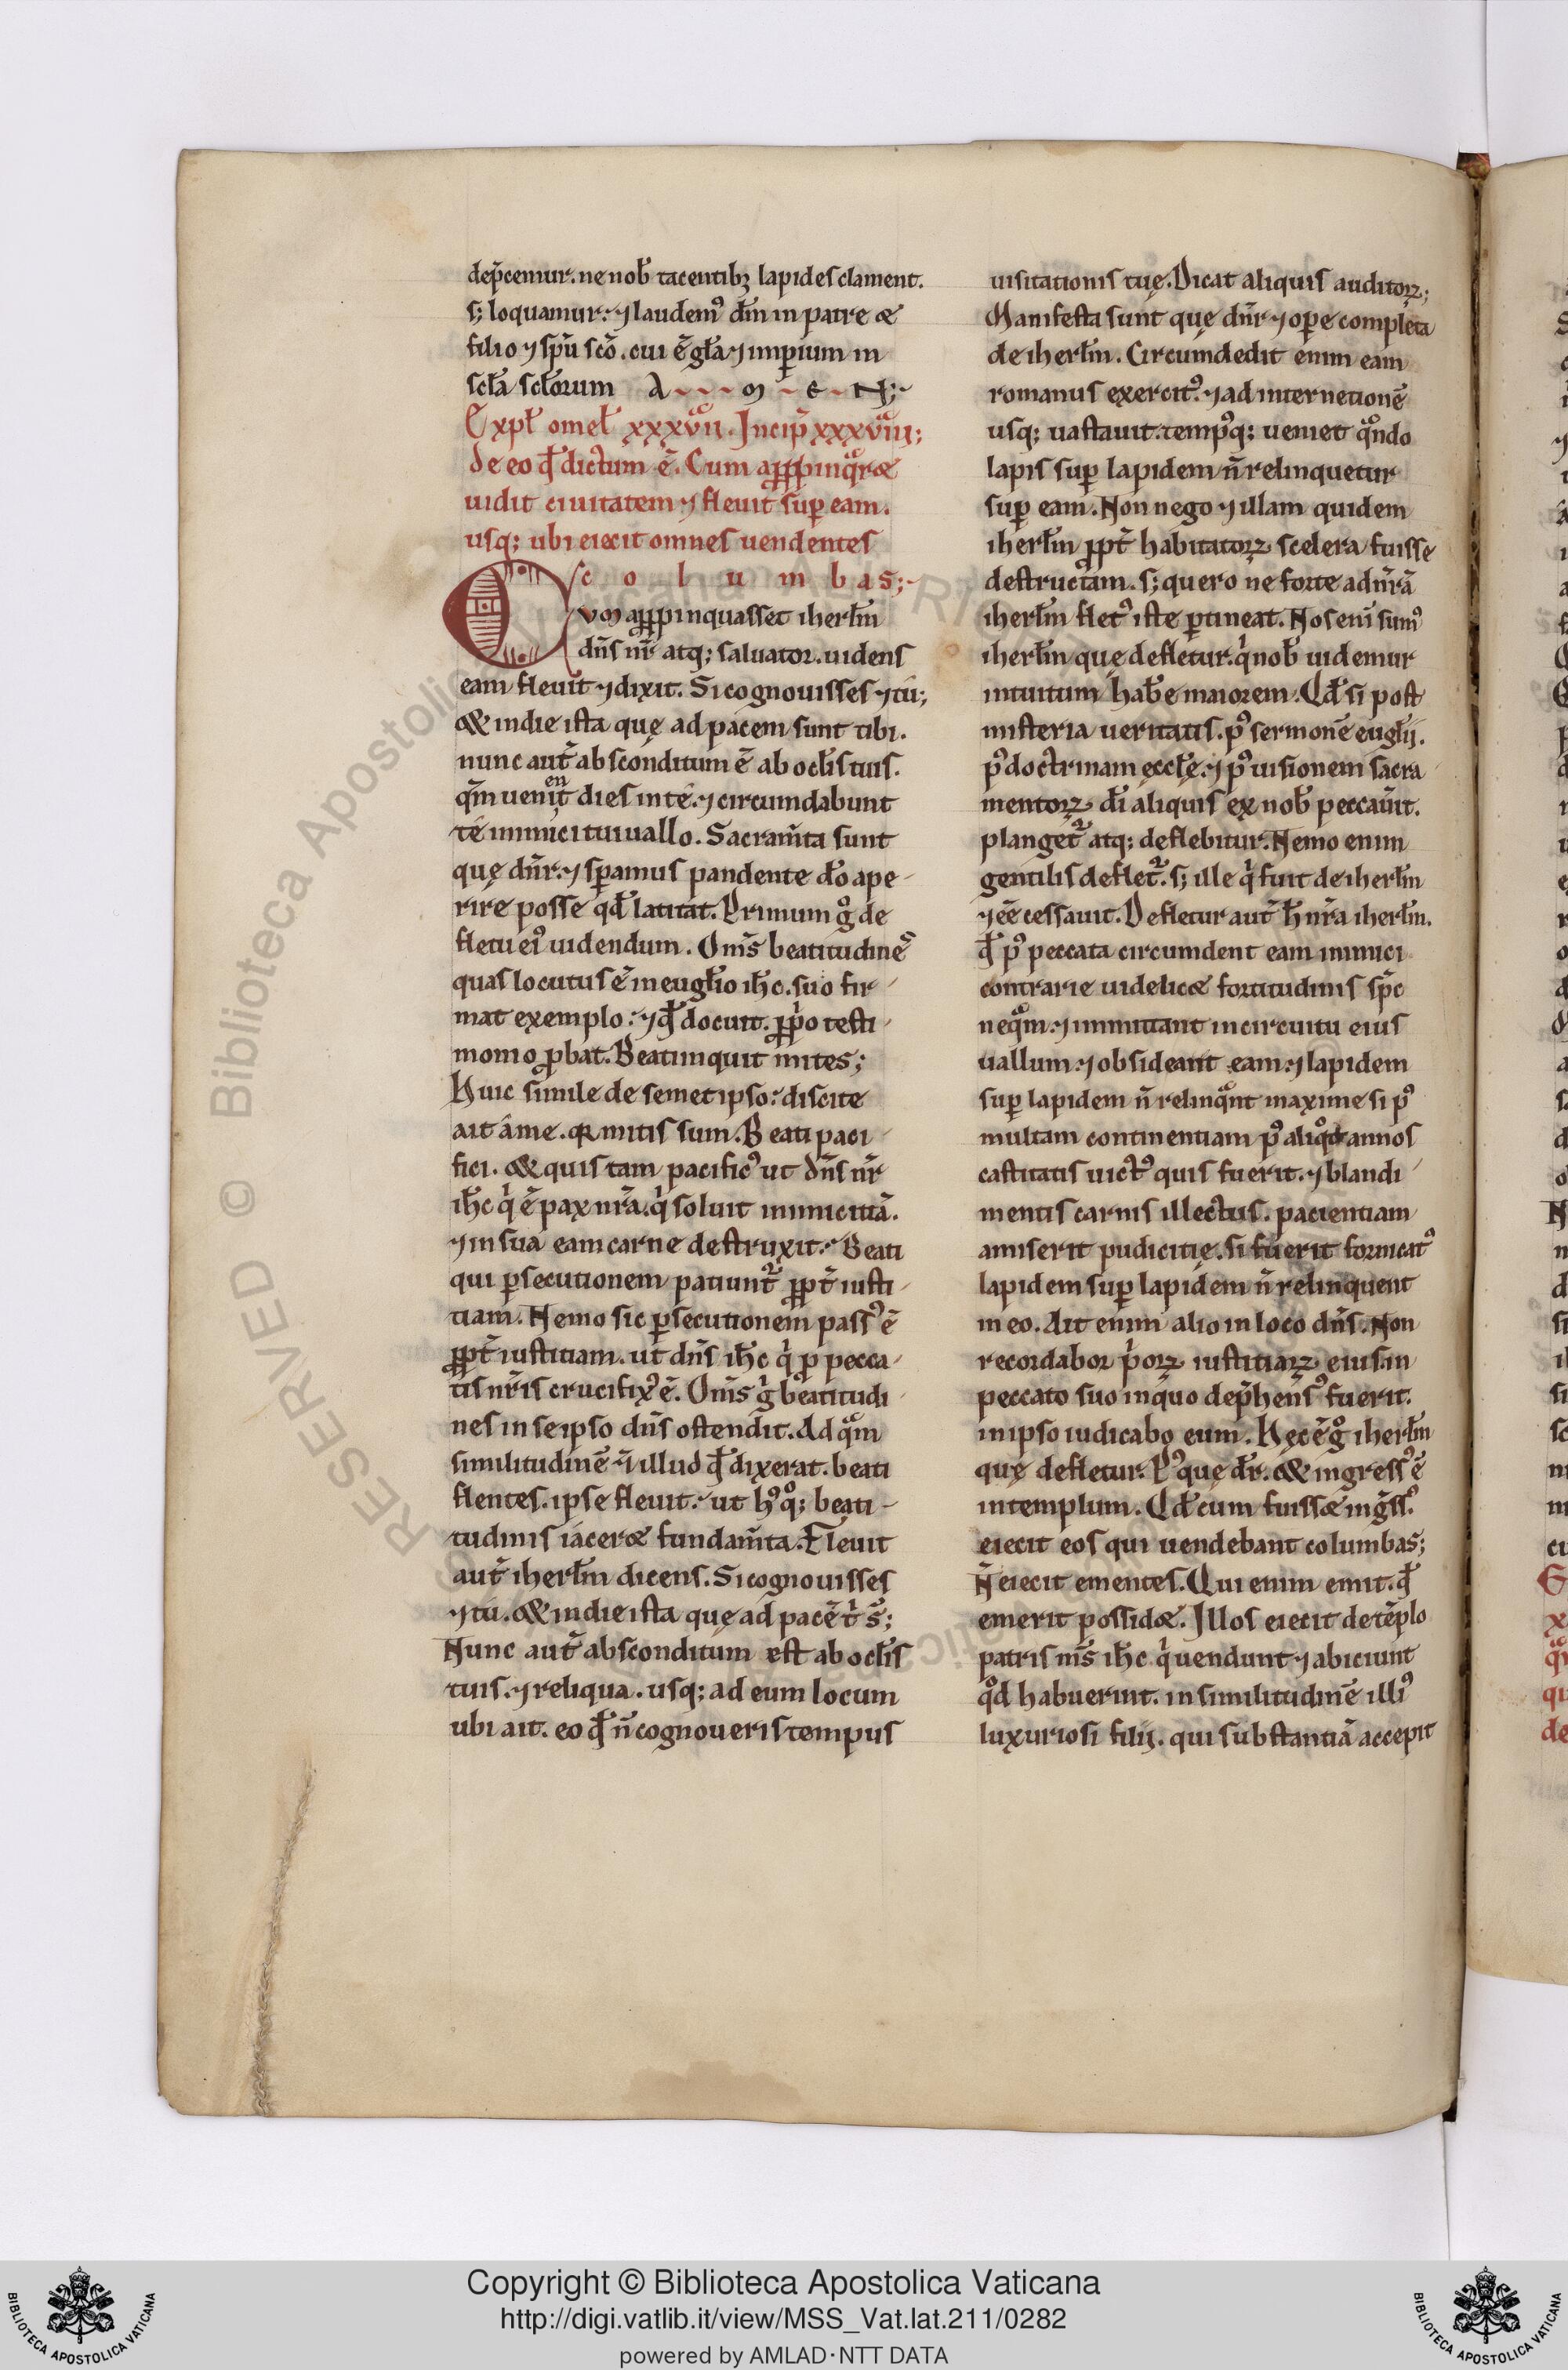 dep̄cemur. ne nob̄ tacentibꝫ lapides clament.
s; loquamur. ⁊ laudemꝰ dm̄ in patre &
filio ⁊ sp̄u sc̄o. cui ē gl̄a ⁊ imꝑium in
sc̄la sc̄lorum A M E N;
Expl̄ omel̄ xxxvii. Incip̄ xxxviii;
de eo qd̄ dictum ē. Cum aꝓpinqͣr&
uidit ciuitatem ⁊ fleuit suꝑ eam.
usq; ubi eiecit omnes uendentes
c o l u m b a s;
CVM aꝓpinquasset iherl̄m
dn̄s nr̄ atq; saluator. uidens
eam fleuit ⁊ dixit. Si cognouisses ⁊ tu;
& in die ista quę ad pacem sunt tibi.
nunc aut̄ absconditum ē ab ocl̄is tuis.
qm̄ uenient dies in te. ⁊ circumdabunt
te inimici tui uallo. Sacram̄ta sunt
quę dn̄r. ⁊ sꝑamus pandente dō ape
rire posse qd̄ latitat. Primum gͦ de
fletu eiꝰ uidendum. Om̄s beatitudinēs
quas locutus ē in eugl̄io ih̄c. suo fir
mat exemplo. ⁊ qd̄ docuit. ꝓp̄o testi
monio ꝓbat. Beati inquit mites;
Huic simile de semet ipso. discite
ait a me. qꝛ mitis sum. Beati paci
fici. & quis tam pacificꝰ ut dn̄s nr̄
ih̄c qͥ ē pax nr̄a. qͥ soluit inimicitiā.
⁊ in sua eam carne destruxit. Beati
qui ꝑsecutionem patiunt᷑ ꝓpt̄ iusti
tiam. Nemo sic ꝑsecutionem passꝰ ē
ꝓpt̄ iustitiam. ut dn̄s ih̄c qͥ ꝓ pecca
tis nr̄is crucifixꝰ ē. Om̄s gͥ beatitudi
nes in se ipso dn̄s ostendit. Ad qͣm
similitudinē ⁊ illud qd̄ dixerat. beati
flentes. ipse fleuit. ut hꝰ qͦq; beati
tudinis iacer& fundam̄ta. Fleuit
aut̄ iherl̄m dicens. Si cognouisses
⁊ tu. & in die ista quę ad pacē tͥ s̄;
Nunc aut̄ absconditum est ab ocl̄is
tuis. ⁊ reliqua. usq; ad eum locum
ubi ait. eo qd̄ n̄ cognoueris tempus
uisitationis tuę. Dicat aliquis auditoꝝ;
Manifesta sunt quę dn̄r ⁊ oꝑe completa
de iherl̄m. Circumdedit enim eam
romanus exercitꝰ. ⁊ ad internetionē
usq; uastauit. tempꝰq; ueniet qͣndo
lapis suꝑ lapidem n̄ relinquetur
suꝑ eam. Non nego ⁊ illam quidem
iherl̄m ꝓpt̄ habitatoꝝ scelera fuisse
destructam. s; quero ne forte ad nr̄ā
iherl̄m fletꝰ iste ꝑtineat. Nos eni̅ sumꝰ
iherl̄m quę defletur. qͥ nob̄ uidemur
intuitum hab̄e maiorem. Qd̄ si post
misteria ueritatis. pꝰ sermonē eugl̄ij.
pꝰ doctrinam ęccl̄ę. ⁊ pꝰ uisionem sacra
mentoꝝ di̅ aliquis ex nob̄ peccauit.
planget᷑ atq; deflebitur. Nemo enim
gentilis deflet᷑. s; ille qͥ fuit de iherl̄m
⁊ eē cessauit. Defletur aut̄ h̄ nr̄a iherl̄m.
qd̄ pꝰ peccata circumdent eam inimici
contrarie uidelic& fortitudinis sp̄c
neqͣm. ⁊ inmittant in circuitu eius
uallum. ⁊ obsideant eam. ⁊ lapidem
suꝑ lapidem n̄ relinqͣnt maxime si pꝰ
multam continentiam pꝰ aliqͦt annos
castitatis uictꝰ quis fuerit. ⁊ blandi
mentis carnis illectus. pacientiam
amiserit pudicitię. si fuerit fornicatꝰ
lapidem suꝑ lapidem n̄ relinquent
in eo. Ait enim alio in loco dn̄s. Non
recordabor pͥoꝝ iustitiaꝝ eius. in
peccato suo in quo dep̄hensꝰ fuerit.
in ipso iudicabo eum. Hęc ē gͦ iherl̄m
quę defletur. Pꝰ quę dr̄. & ingressꝰ ē
in templum. Qd̄ cum fuiss& ing̃ssꝰ
eiecit eos qui uendebant columbas;
N̄ eiecit ementes. Qui enim emit. qd̄
emerit possid&. Illos eiecit de tēplo
patris ni̅s ih̄c qͥ uendunt ⁊ abiciunt
qͦd habuerint. in similitudinē illiꝰ
luxuriosi filij. qui substantiā accepit
© Biblioteca Apostolica
RESERVED
Copyright © Biblioteca Apostolica Vaticana
http://digi.vatlib.it/view/MSS_Vat.lat.211/0282
powered by AMLAD·NTT DATA
BIBLIOTECA APOSTOLICA VATICANA
BIBLIOTECA APOSTOLICA VATICANA